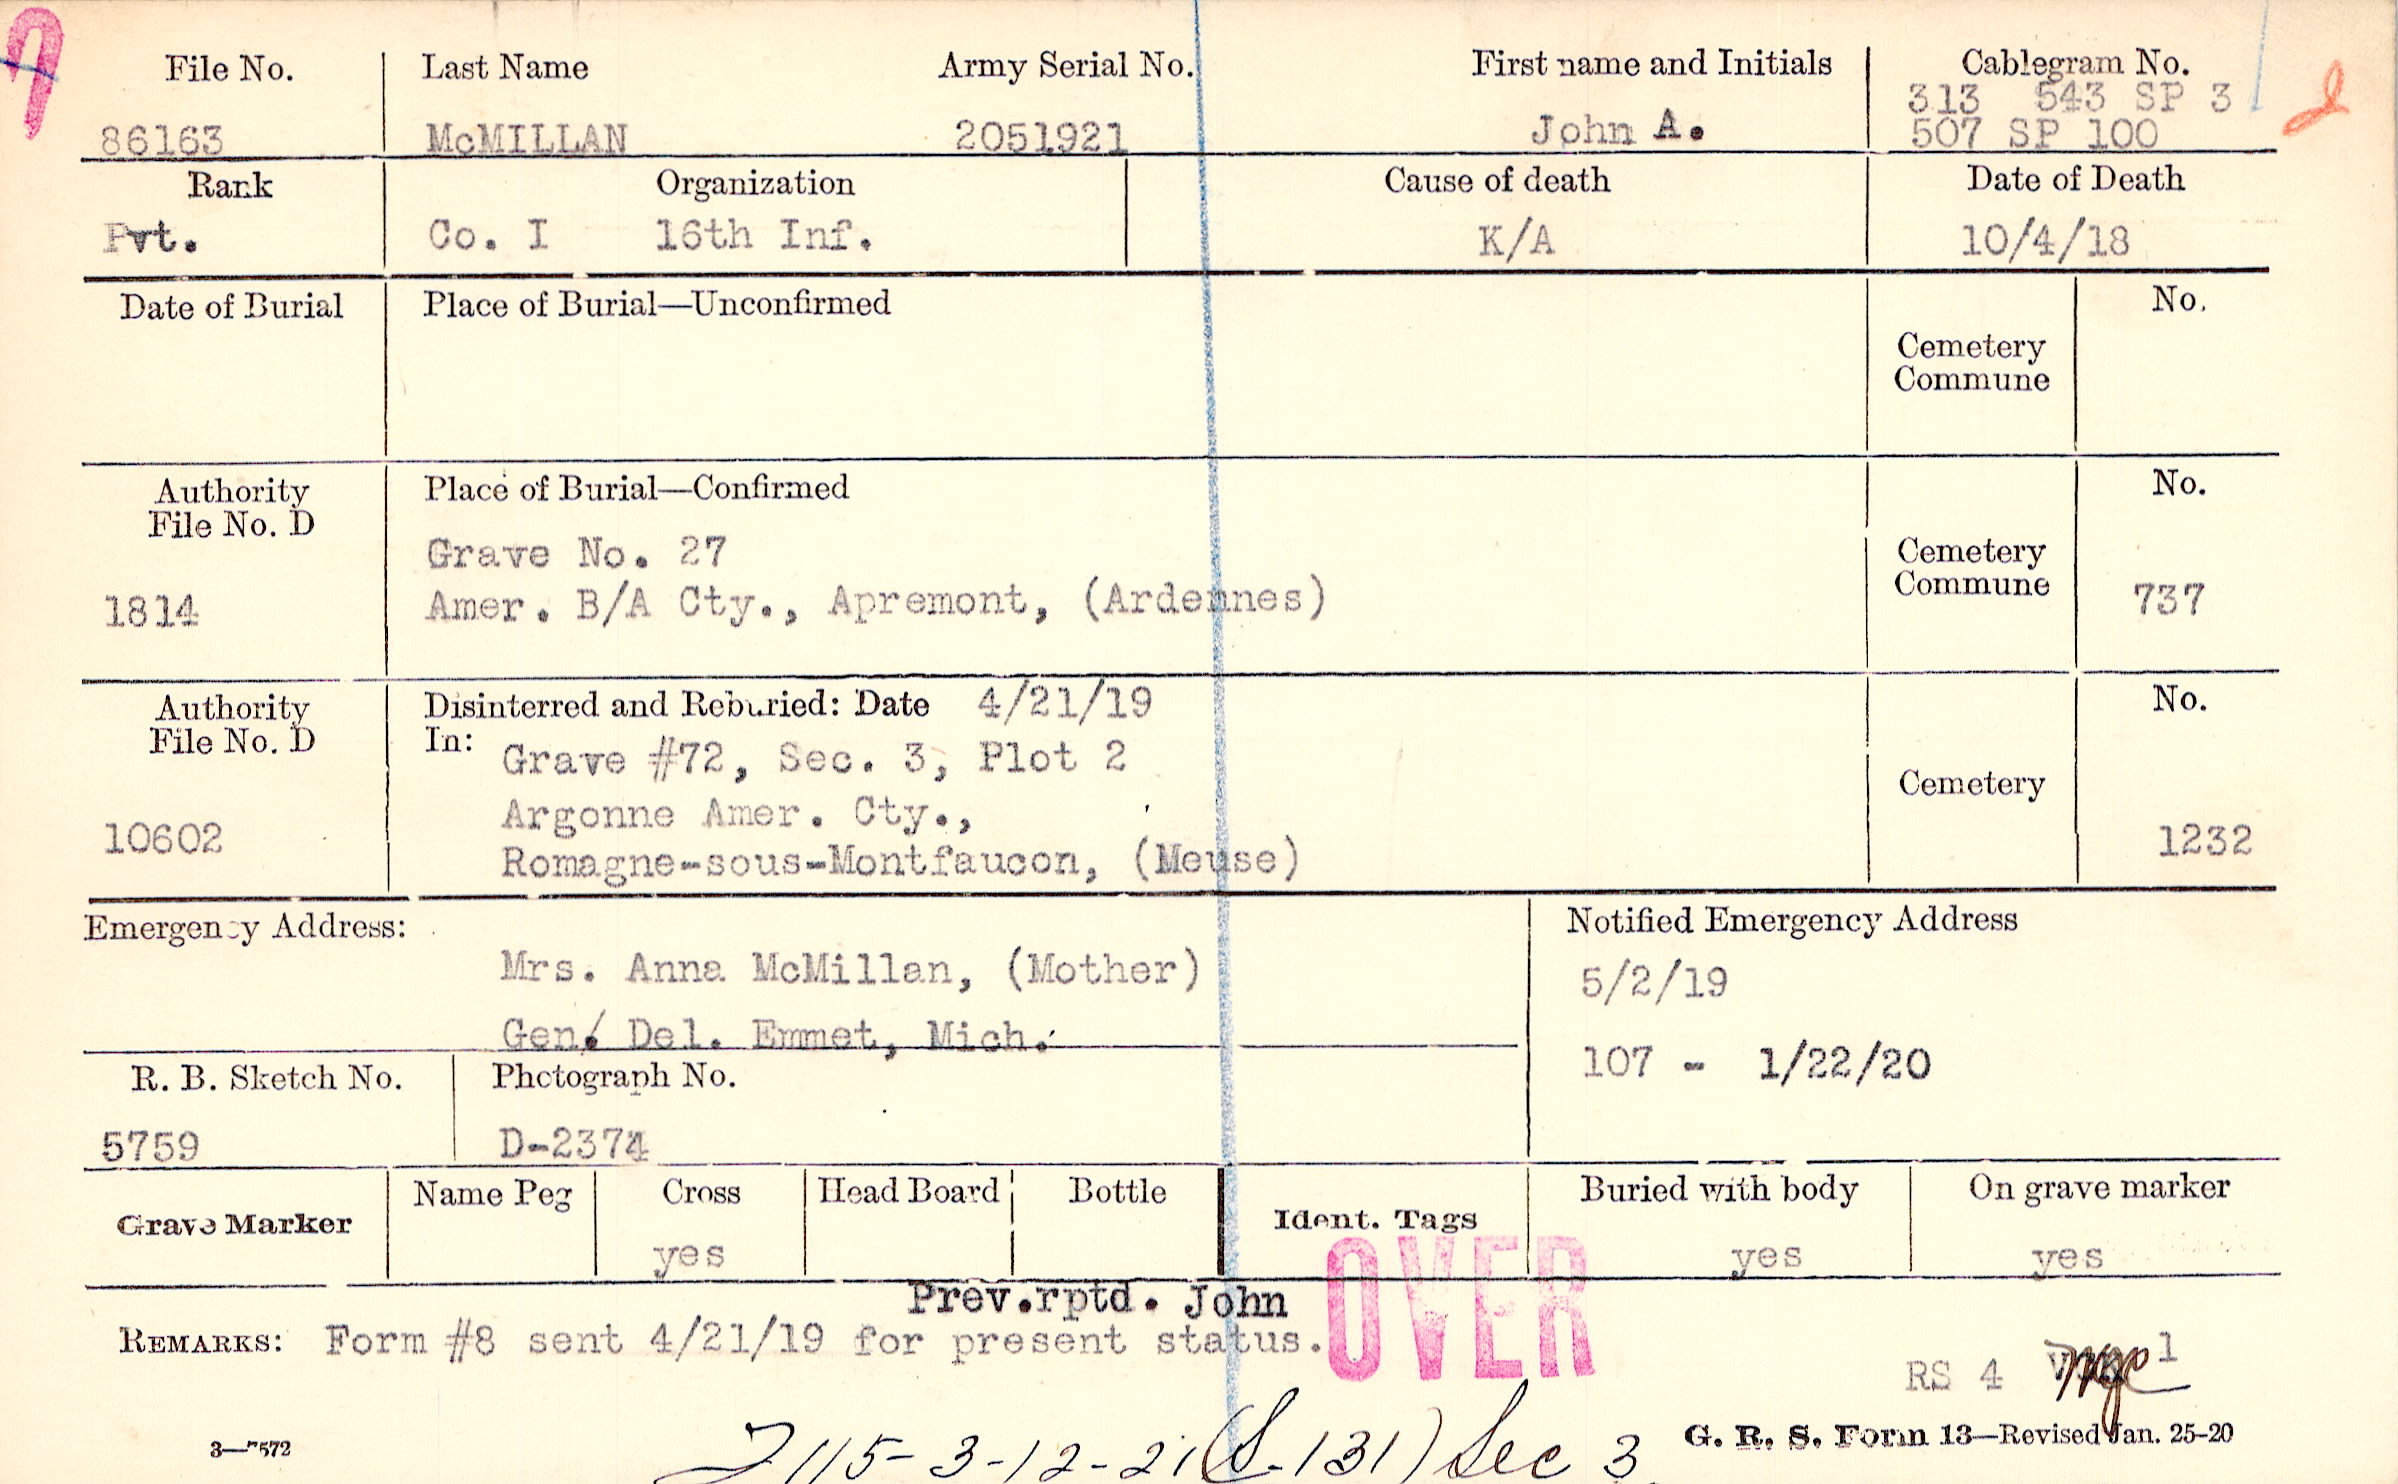 File No. Last Name Army Serial No. First name and Initials Cablegram No.
313 543 SP 3
86163 McMILLAN 2051921 John A. 507 SP 100
Rank Organization Cause of death Date of Death
Pvt. Co. I 16th Inf. K/A 10/4/18
Date of Burial Place of Burial—Unconfirmed No.
Cemetery
Commune
Authority Place of Burial—Confirmed No.
File No. D
Grave No. 27 Cemetery
1814 Amer. B/A Cty., Apremont, (Ardennes) Commune 737
Authority Disinterred and Reburied: Date 4/21/19 No.
File No. D In:
Grave #72, Sec. 3, Plot 2
Cemetery
Argonne Amer. Cty.,
10602 1232
Romagne-sous-Montfaucon, (Meuse)
Emergency Address: Notified Emergency Address
Mrs. Anna McMillan, (Mother) 5/2/19
Gen. Del. Emmet, Mich.
107 - 1/22/20
R. B. Sketch No. Photograph No.
5759 D-2374
Grave Marker Name Peg Cross Head Board Bottle Ident. Tags Buried with body On grave marker
yes yes yes
OVER
Prev.rptd. John
REMARKS: Form #8 sent 4/21/19 for present status.
RS 4 1
115-3-12-21 (S-131) Sec 3
3—7572 G. R. S. Form 13—Revised Jan. 25-20